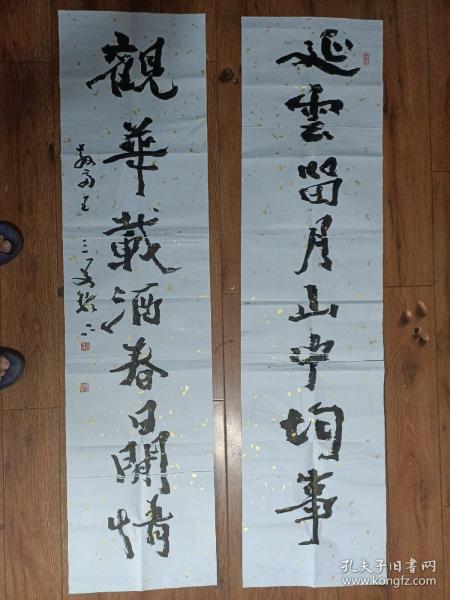 延雲留月山中均事
觀華載酒春日閒情
孔夫子旧书网
www.kongfz.com